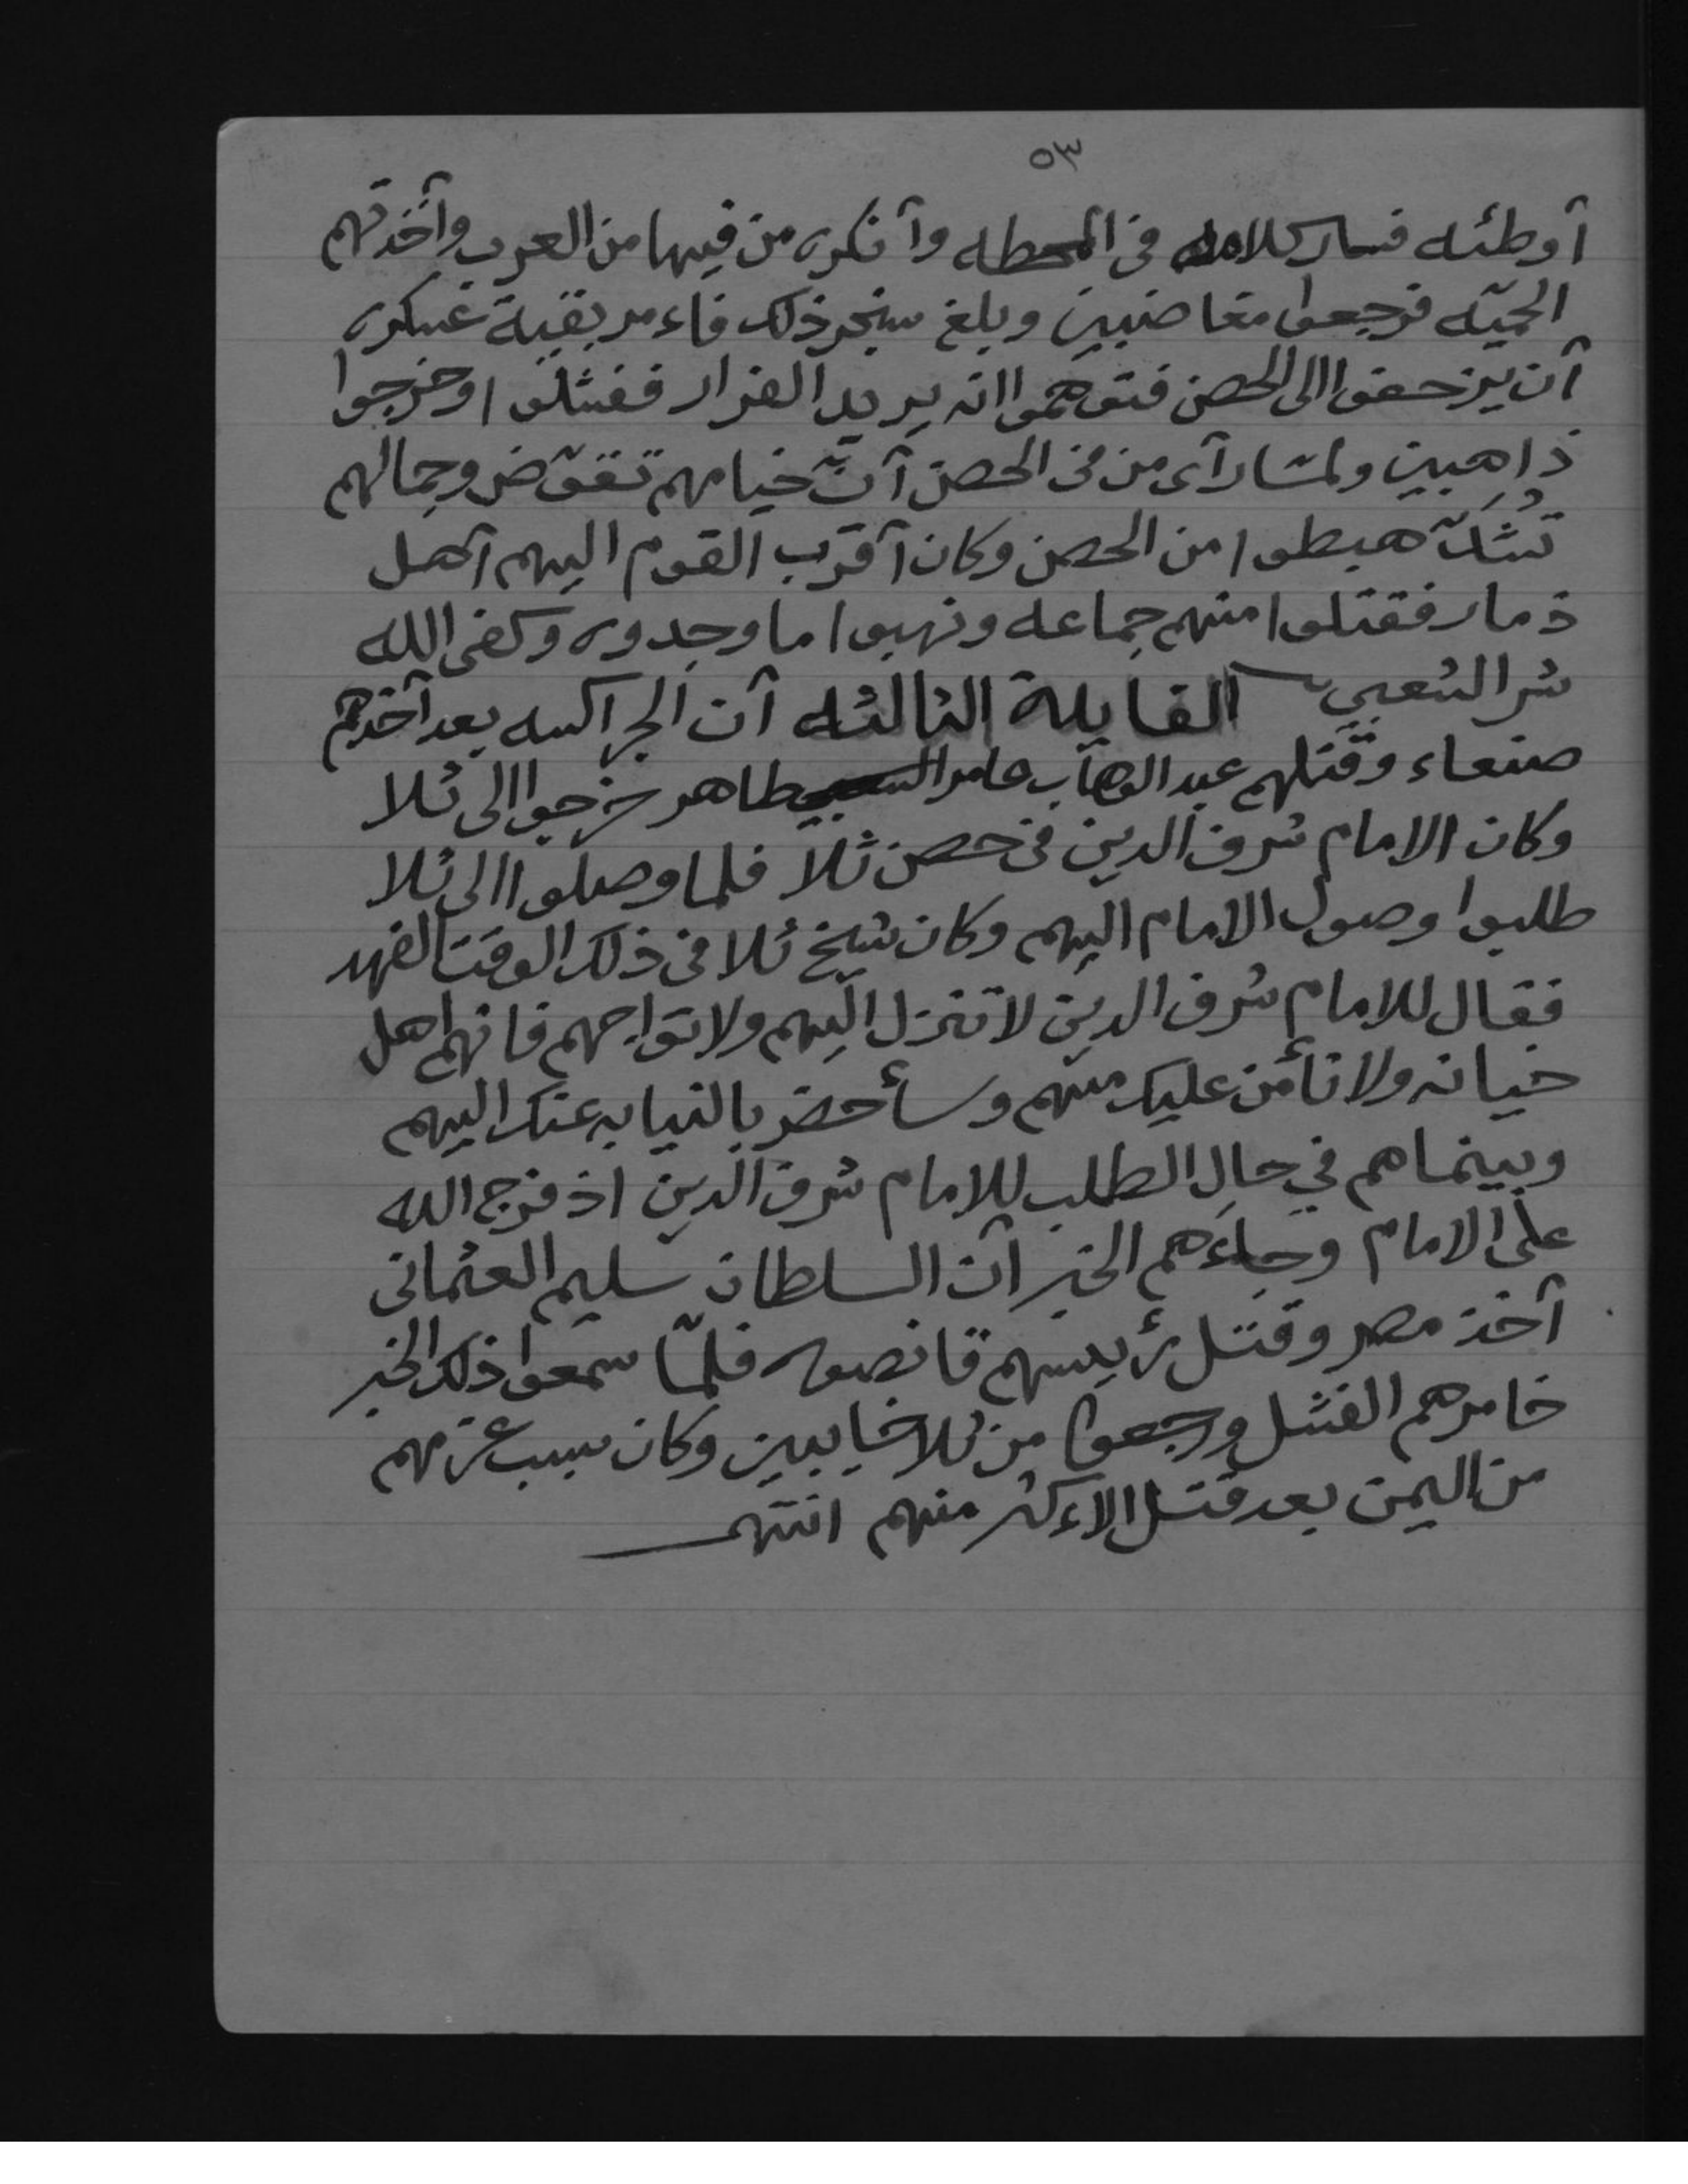 ٥٣
أوطئه فسار كلامه في المحطه وأنكره من فيها من العرب وأخذتهم
الحميّه فرجعوا مغاضبين وبلغ سنجر ذلك فاءمر بقية عسكره
أن يزحفوا الى الحصن فتوهموا انه يريد الفرار ففشلوا وخرجوا
ذاهبين ولمّا رآى من في الحصن أنّ خيامهم تقوّض وجمالهم
تُشَدّ هبطوا من الحصن وكان أقرب القوم اليهم أهل
ذمار فقتلوا منهم جماعه ونهبوا ما وجدوه وكفى الله
شر الشعبي القايلة الثالثه أن الجراكسه بعد أخذهم
صنعاء وقتلهم عبد الوهاب عامر طاهر خرجوا الى ثلا
وكان الامام شرف الدين في حصن ثلا فلما وصلوا الى ثلا
طلبوا وصول الامام اليهم وكان شيخ ثلا في ذلك الوقت الفهد
فقال للامام شرف الدين لا تنزل اليهم ولا تواجههم فانهم اهل
خيانه ولا نأمن عليك منهم وسأحضر بالنيابه عنك اليهم
وبينما هم في حال الطلب للامام شرف الدين اذ فرج الله
على الامام وجاءهم الخبر أن السلطان سليم العثماني
أخذ مصر وقتل رئيسهم قانصوه فلمّا سمعوا ذلك الخبر
خامرهم الفشل ورجعوا من ثلا خايبين وكان سبب عزمهم
من اليمن بعد قتل الاءكثر منهم انتهى